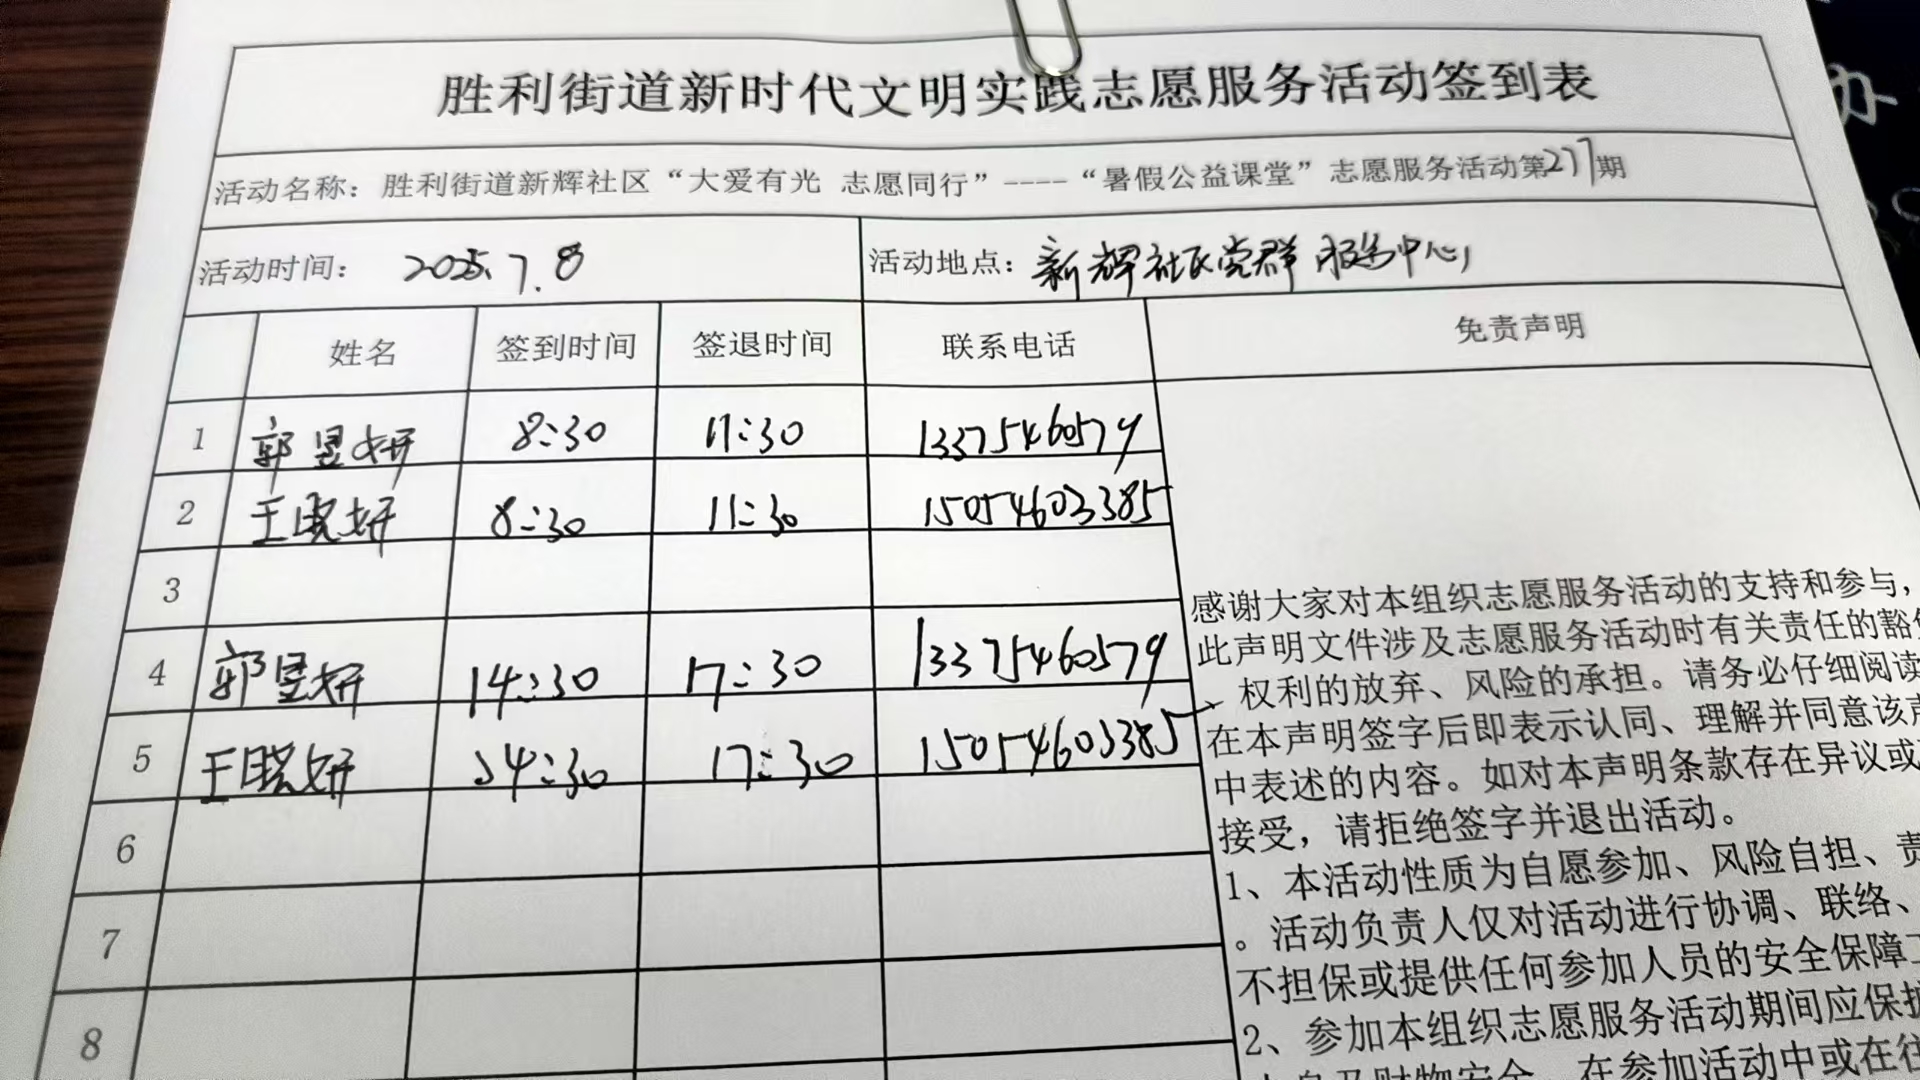 胜利街道新时代文明实践志愿服务活动签到表
活动名称：胜利街道新辉社区“大爱有光 志愿同行”----“暑假公益课堂”志愿服务活动第277期
活动时间： 2025.7.8 活动地点：新辉社区党群服务中心
姓名 签到时间 签退时间 联系电话 免责声明
1 郭昱妍 8:30 11:30 13375460579
2 王晓妍 8:30 11:30 15054603385
3
4 郭昱妍 14:30 17:30 13375460579
5 王晓妍 14:30 17:30 15054603385
6
7
8
感谢大家对本组织志愿服务活动的支持和参与，
此声明文件涉及志愿服务活动时有关责任的豁
、权利的放弃、风险的承担。请务必仔细阅读
在本声明签字后即表示认同、理解并同意该声
中表述的内容。如对本声明条款存在异议或
接受，请拒绝签字并退出活动。
1、本活动性质为自愿参加、风险自担、责
。活动负责人仅对活动进行协调、联络、
不担保或提供任何参加人员的安全保障
2、参加本组织志愿服务活动期间应保护
身及财物安全 在参加活动中或在往